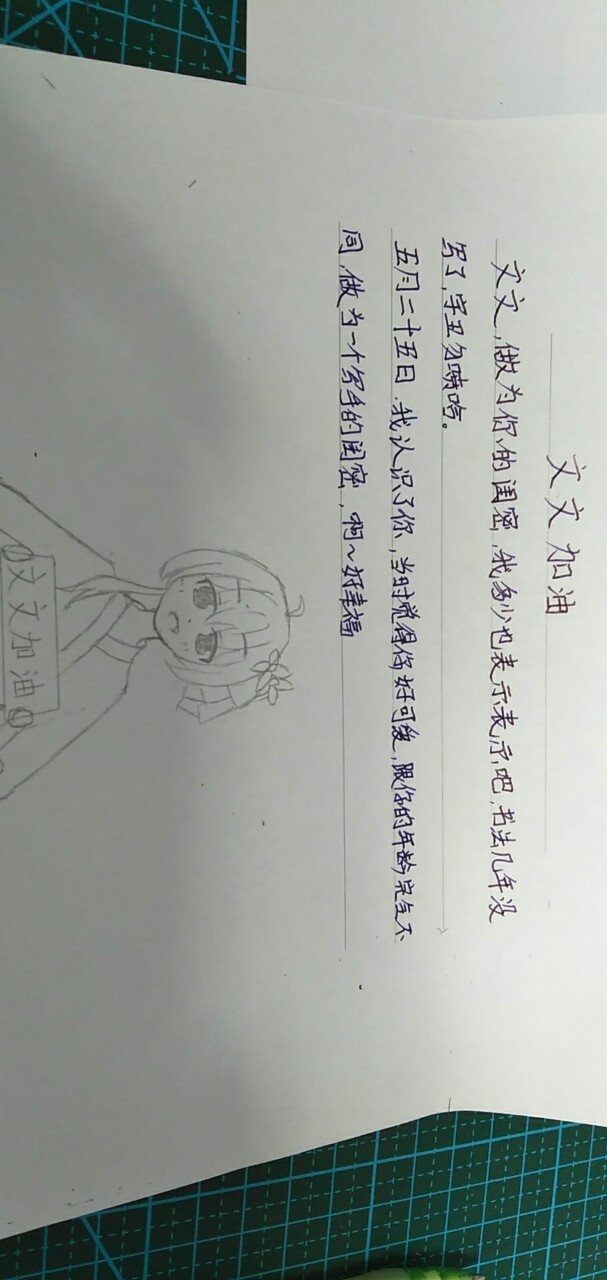 文文加油
文文，做为你的闺密，我多少也表示表示吧，书法几年没
写了，字丑勿喷哈。
五月二十五日，我认识了你，当时觉得你好可爱，跟你的年龄完全不
同，做为一个写手的闺密，啊～好幸福
文文加油